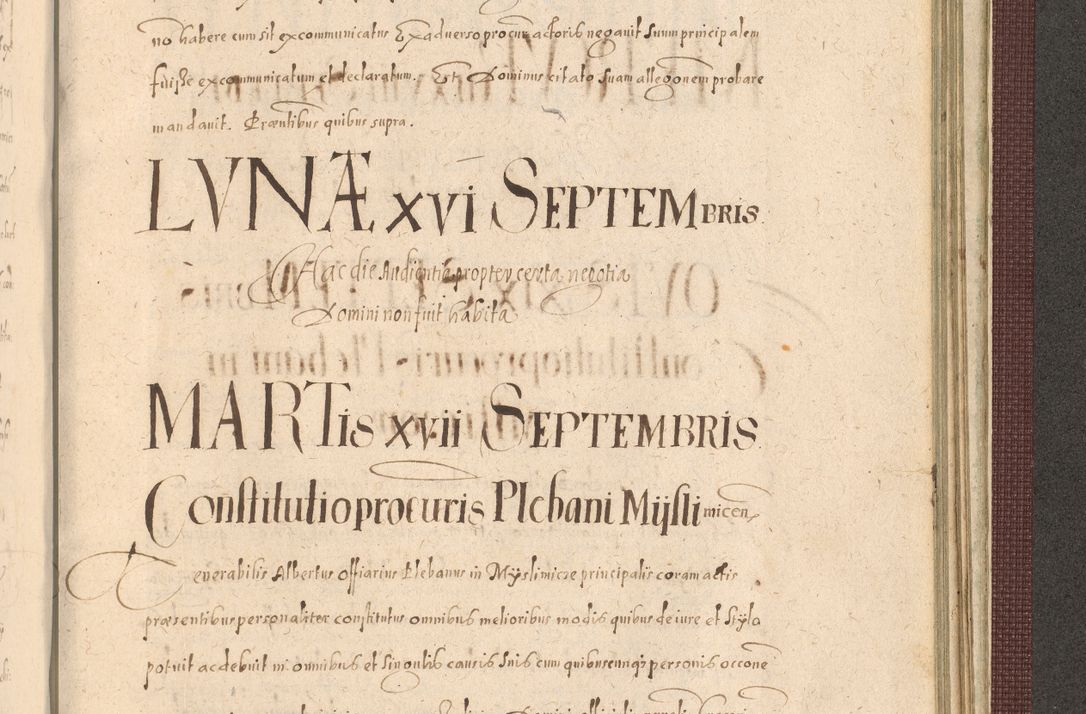 no habere cum sit excommunicatus Ex adverso procur actoris negavit suum principalem
fuisse excommunicatum et declaratum. Et Dominus citato suam allegonem probare
mandavit. Præntibus quibus supra.
LVNÆ XVI SEPTEMBRIS
Hac die Audientia propter certa negotia
Domini non fuit habita
MARTis XVII SEPTEMBRIS
Constitutio procuris Plebani Mijslimicen
Venerabilis Albertus Offiarius Plebanus in Mijslimicze principalis coram actis
præsentibus personaliter constitutus omnibus melioribus modis quibus de iure et stylo
potuit ac debuit in omnibus et singulis causis suis cum quibuscunq; personis occone